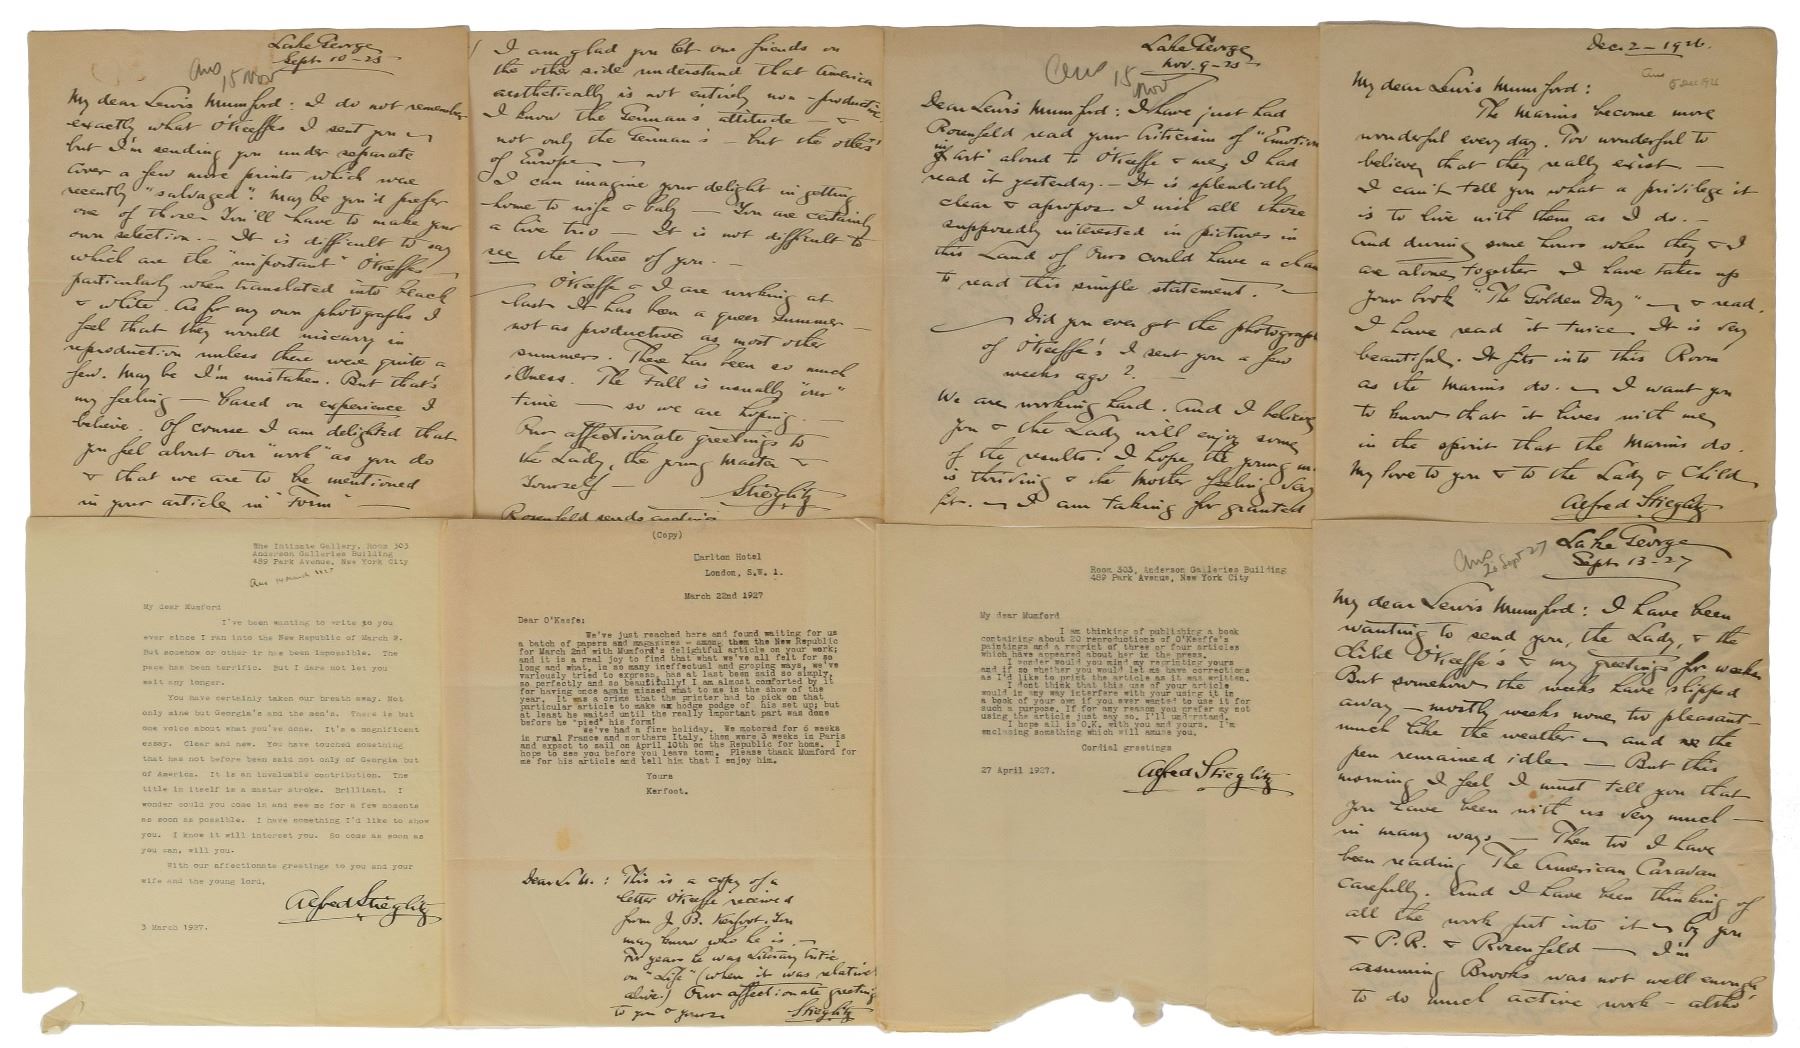 Lake George
Sept. 10-25
Ans 15 Nov
My dear Lewis Mumford: I do not remember
exactly what O'Keeffes I sent you —
but I'm sending you under separate
cover a few more prints which were
recently "salvaged". May be you'd prefer
one of those. You'll have to make your
own selection. — It is difficult to say
which are the "important" O'Keeffes —
particularly when translated into black
& white. As for my own photographs I
feel that they would miscarry in
reproduction unless there were quite a
few. May be I'm mistaken. But that's
my feeling — based on experience I
believe. Of course I am delighted that
you feel about our "work" as you do
& that we are to be mentioned
in your article in "Form" —
I am glad you let our friends on
the other side understand that America
aesthetically is not entirely non-productive.
I know the German's attitude — &
not only the German's — but the others
of Europe —
I can imagine your delight in getting
home to wife & baby — You are certainly
a live trio — It is not difficult to
see the three of you. —
O'Keeffe & I are working at
last. It has been a queer summer —
not as productive as most other
summers. There has been so much
illness. The Fall is usually "our"
time — so we are hoping. —
Our affectionate greetings to
the Lady, the young Master &
Yourself —
Stieglitz
Rosenfeld sends greetings
Lake George
Nov. 9-25
Ans 15 Nov
Dear Lewis Mumford: I have just had
Rosenfeld read your Criticism of "Emotion
in Art" aloud to O'Keeffe & me. I had
read it yesterday. — It is splendidly
clear & apropos. I wish all those
supposedly interested in pictures in
this Land of Ours could have a chan
to read this simple statement. —
Did you ever get the photograph
of O'Keeffe's I sent you a few
weeks ago? —
We are working hard. And I believe
you & the Lady will enjoy some
of the results. I hope the young m
is thriving & the Mother feeling very
fit. — I am taking for granted
Dec. 2 — 1926.
Ans 5 Dec 1926
My dear Lewis Mumford:
The Marins become more
wonderful every day. Too wonderful to
believe that they really exist —
I can't tell you what a privilege it
is to live with them as I do. —
And during some hours when they & I
are alone together I have taken up
your book "The Golden Day" — & read.
I have read it twice. It is very
beautiful. It fits into this Room
as the Marins do. — I want you
to know that it lives with me
in the spirit that the Marins do.
My love to you & to the Lady & Child
Alfred Stieglitz
The Intimate Gallery, Room 303
Anderson Galleries Building
489 Park Avenue, New York City
Ans 14 March 1927
My dear Mumford
I've been wanting to write to you
ever since I ran into the New Republic of March 2.
But somehow or other it has been impossible. The
pace has been terrific. But I dare not let you
wait any longer.
You have certainly taken our breath away. Not
only mine but Georgia's and the men's. There is but
one voice about what you've done. It's a magnificent
essay. Clear and new. You have touched something
that has not before been said not only of Georgia but
of America. It is an invaluable contribution. The
title in itself is a master stroke. Brilliant. I
wonder could you come in and see me for a few moments
as soon as possible. I have something I'd like to show
you. I know it will interest you. So come as soon as
you can, will you.
With our affectionate greetings to you and your
wife and the young lord,
Alfred Stieglitz
3 March 1927.
(Copy)
Carlton Hotel
London, S.W. 1.
March 22nd 1927
Dear O'Keefe:
We've just reached here and found waiting for us
a batch of papers and magazines - among them the New Republic
for March 2nd with Mumford's delightful article on your work;
and it is a real joy to find that what we've all felt for so
long and what, in so many ineffectual and groping ways, we've
variously tried to express, has at last been said so simply,
so perfectly and so beautifully! I am almost comforted by it
for having once again missed what to me is the show of the
year. It was a crime that the printer had to pick on that
particular article to make a hodge podge of his set up; but
at least he waited until the really important part was done
before he "pied" his form!
We've had a fine holiday. We motored for 6 weeks
in rural France and northern Italy, then were 3 weeks in Paris
and expect to sail on April 10th on the Republic for home. I
hope to see you before you leave town. Please thank Mumford for
me for his article and tell him that I enjoy him.
Yours
Kerfoot.
Dear L. M.: This is a copy of a
letter O'Keeffe received
from J. B. Kerfoot. You
may know who he is. —
For years he was Literary Critic
on "Life" (when it was relative
alive.) Our affectionate greeting
to you & yours
Stieglitz
Room 303, Anderson Galleries Building
489 Park Avenue, New York City
My dear Mumford
I am thinking of publishing a book
containing about 20 reproductions of O'Keeffe's
paintings and a reprint of three or four articles
which have appeared about her in the press.
I wonder would you mind my reprinting yours
and if so whether you would let me have corrections
as I'd like to print the article as it was written.
I don't think that this use of your article
would in any way interfere with your using it in
a book of your own if you ever wanted to use it for
such a purpose. If for any reason you prefer my not
using the article just say so. I'll understand.
I hope all is O.K. with you and yours. I'm
enclosing something which will amuse you.
Cordial greetings
27 April 1927.
Alfred Stieglitz
Lake George
Sept. 13-27
Ans 20 Sept 27
My dear Lewis Mumford: I have been
wanting to send you, the Lady, & the
Child O'Keeffe's & my greetings for weeks
But somehow the weeks have slipped
away — mostly weeks none too pleasant —
much like the weather — and the
pen remained idle — But this
morning I feel I must tell you that
you have been with us very much —
in many ways — Then too I have
been reading The American Caravan
carefully. And I have been thinking of
all the work put into it — by you
& P.R. & Rosenfeld — I'm
assuming Brooks was not well enough
to do much active work — altho'